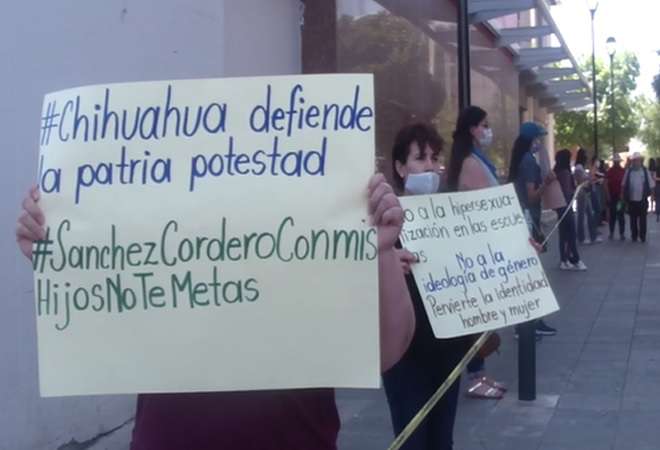 #Chihuahua defiende
la patria potestad
#SanchezCorderoConmis
HijosNoTeMetas
No a la hipersexua-
lización en las escue-
las
No a la
ideología de género
Pervierte la identidad
hombre y mujer